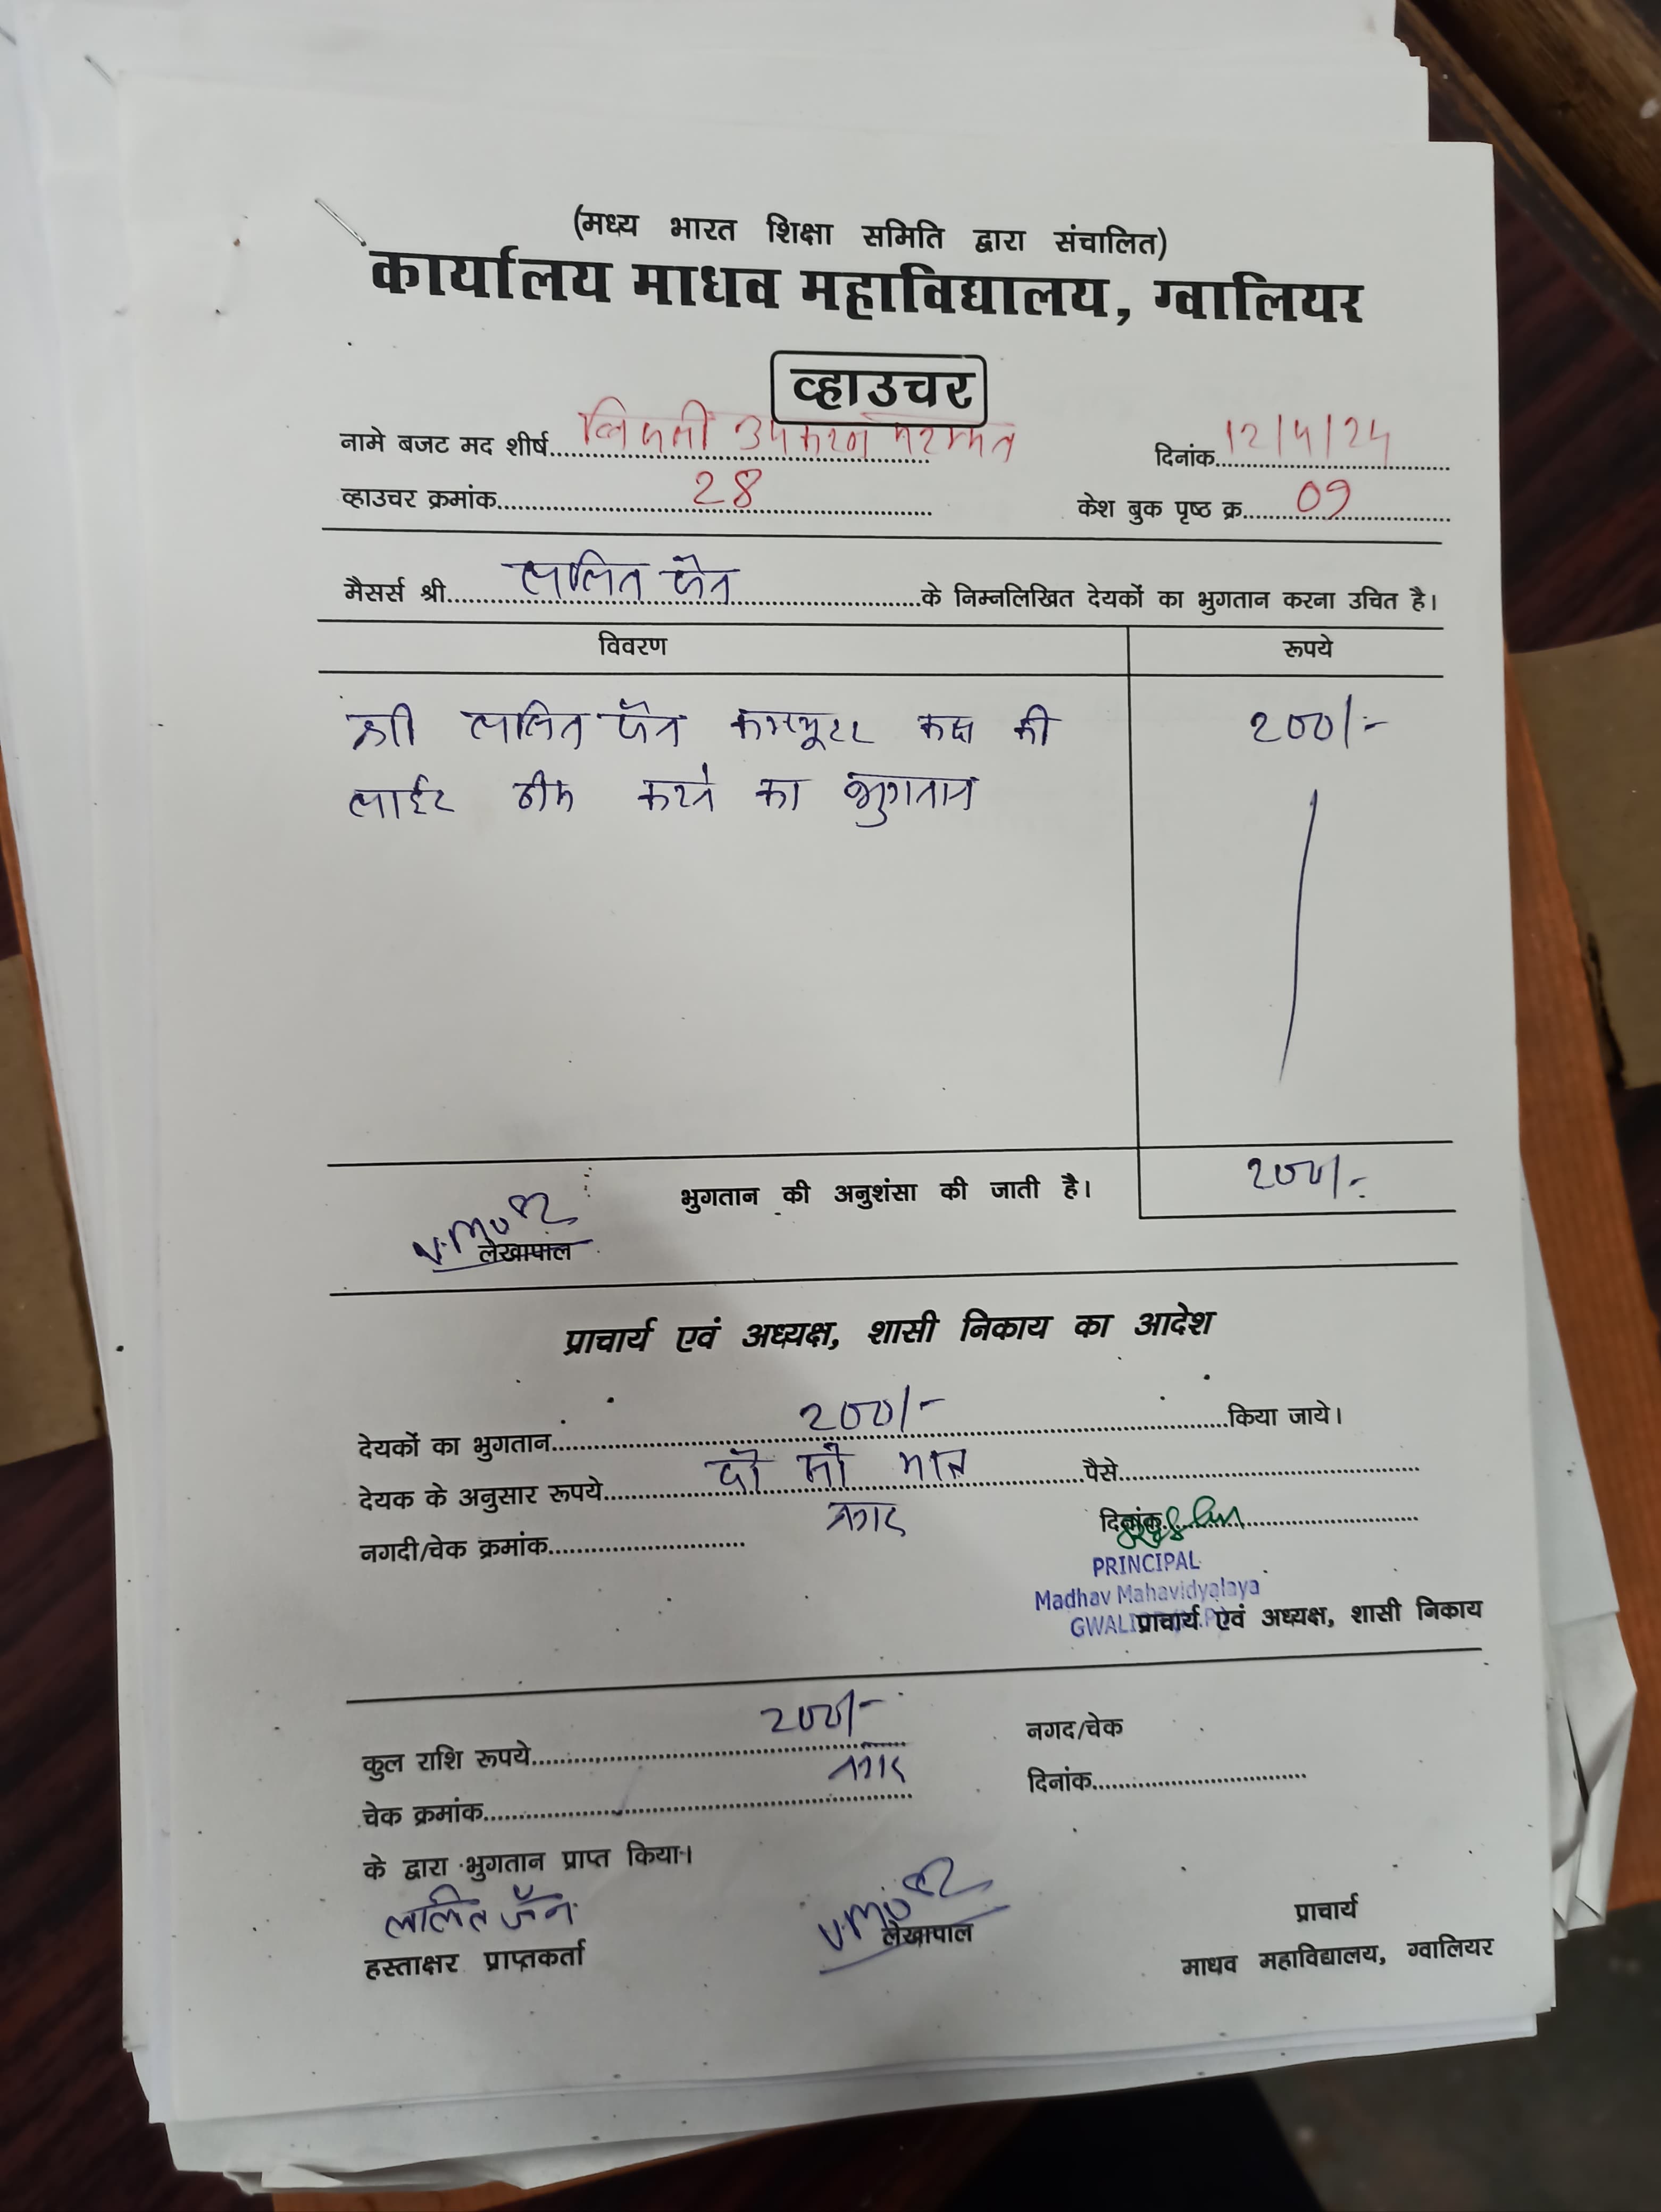 (मध्य भारत शिक्षा समिति द्वारा संचालित)
कार्यालय माधव महाविद्यालय, ग्वालियर
व्हाउचर
नामे बजट मद शीर्ष बिजली उपकरण मरम्मत दिनांक 12/4/24
व्हाउचर क्रमांक 28 केश बुक पृष्ठ क्र. 09
मैसर्स श्री ललित जैन के निम्नलिखित देयकों का भुगतान करना उचित है।
विवरण रूपये
श्री ललित जैन कम्प्यूटर कक्ष की 200/-
लाईट ठीक करने का भुगतान
भुगतान की अनुशंसा की जाती है। 200/-
लेखापाल
प्राचार्य एवं अध्यक्ष, शासी निकाय का आदेश
देयकों का भुगतान 200/- किया जाये।
देयक के अनुसार रूपये दो सौ मात्र पैसे
नगदी/चेक क्रमांक दिनांक
PRINCIPAL
Madhav Mahavidyalaya
प्राचार्य एवं अध्यक्ष, शासी निकाय
कुल राशि रूपये 200/- नगद/चेक
चेक क्रमांक दिनांक
के द्वारा भुगतान प्राप्त किया।
ललित जैन
हस्ताक्षर प्राप्तकर्ता लेखापाल प्राचार्य
माधव महाविद्यालय, ग्वालियर